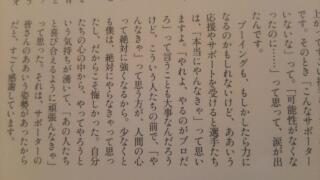 いないな」って。「可能性がなくな
ったのに……」って思って、涙が出
たんです。
ブーイングも、もしかしたら力に
なるのかもしれないけど、ああいう
応援やサポートを受けると選手たち
は、「本当にやんなきゃ」って思い
ますよ。「やれよ、やるのがプロだ
ろ」って言うことも大事なんだろう
けど、こういう人たちの前で、「や
んなきゃ」って思う方が、人間の心
って絶対に強くなるから。少なくと
も僕は、絶対にやんなきゃって思っ
たし、だからこそ悔しかった。自分
たちの心の中から、やってやろうと
いう気持ちが湧いて、「あの人たち
と喜び合えるように頑張んなきゃ」
って思った。それは、サポーターの
皆さんのああいう姿勢があったから
だと、すごく感謝しています。